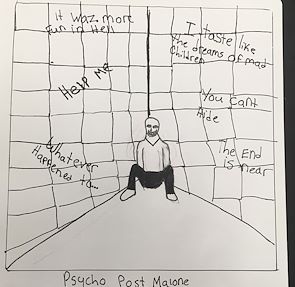 It waz more
fun in Hell
I taste like
the dreams of mad
Children
Help me
You can't
Hide
Whatever
Happened to...
The End
is near
Psycho Post Malone